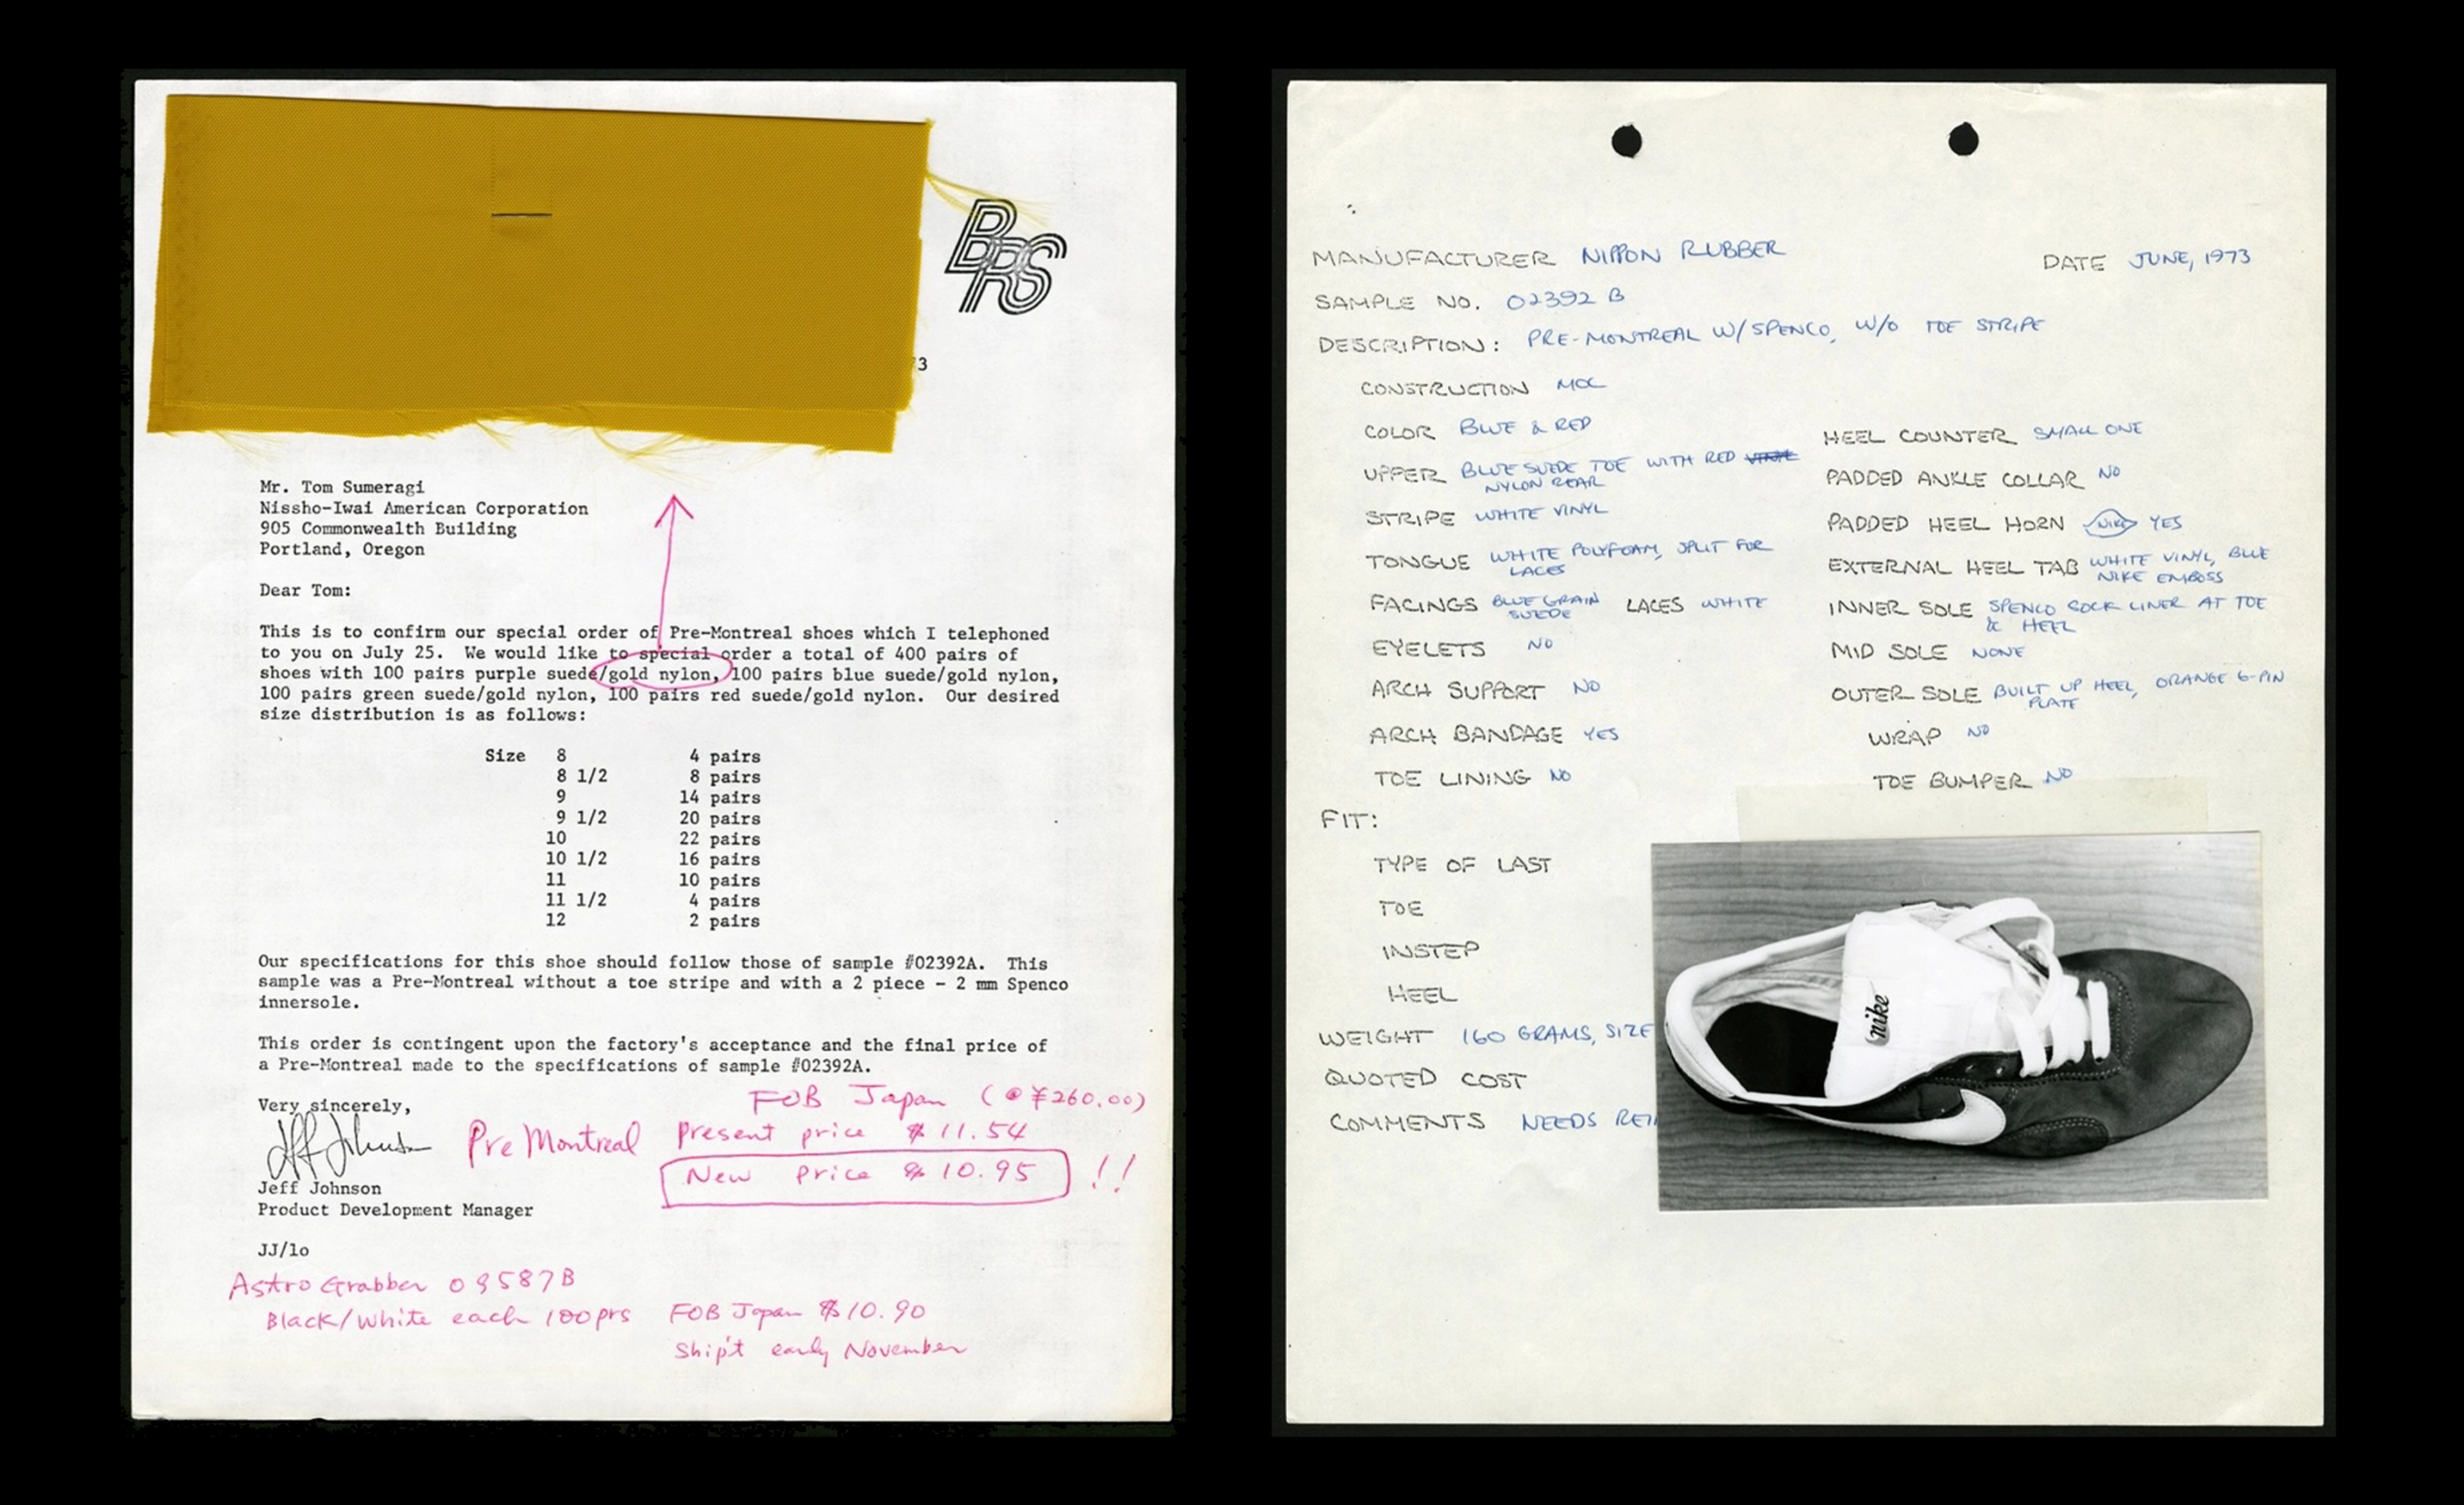 BRS
3
Mr. Tom Sumeragi
Nissho-Iwai American Corporation
905 Commonwealth Building
Portland, Oregon
Dear Tom:
This is to confirm our special order of Pre-Montreal shoes which I telephoned
to you on July 25. We would like to special order a total of 400 pairs of
shoes with 100 pairs purple suede/gold nylon, 100 pairs blue suede/gold nylon,
100 pairs green suede/gold nylon, 100 pairs red suede/gold nylon. Our desired
size distribution is as follows:
Size 8 4 pairs
8 1/2 8 pairs
9 14 pairs
9 1/2 20 pairs
10 22 pairs
10 1/2 16 pairs
11 10 pairs
11 1/2 4 pairs
12 2 pairs
Our specifications for this shoe should follow those of sample #02392A. This
sample was a Pre-Montreal without a toe stripe and with a 2 piece - 2 mm Spenco
innersole.
This order is contingent upon the factory's acceptance and the final price of
a Pre-Montreal made to the specifications of sample #02392A.
Very sincerely,
FOB Japan (@¥260.00)
Jeff Johnson
Pre Montreal Present price $11.54
New price $10.95 !!
Jeff Johnson
Product Development Manager
JJ/lo
Astro Grabber 09587B
Black/White each 100prs FOB Japan $10.90
Ship't early November
MANUFACTURER NIPPON RUBBER DATE JUNE, 1973
SAMPLE NO. 02392 B
DESCRIPTION: PRE-MONTREAL W/SPENCO, W/O TOE STRIPE
CONSTRUCTION MOC
COLOR BLUE & RED
UPPER BLUE SUEDE TOE WITH RED VINYL
NYLON REAR
STRIPE WHITE VINYL
TONGUE WHITE POLYFOAM, SPLIT FOR
LACES
FACINGS BLUE GRAIN LACES WHITE
SUEDE
EYELETS NO
ARCH SUPPORT NO
ARCH BANDAGE YES
TOE LINING NO
HEEL COUNTER SMALL ONE
PADDED ANKLE COLLAR NO
PADDED HEEL HORN NIKE YES
EXTERNAL HEEL TAB WHITE VINYL, BLUE
NIKE EMBOSS
INNER SOLE SPENCO SOCK LINER AT TOE
& HEEL
MID SOLE NONE
OUTER SOLE BUILT UP HEEL, ORANGE 6-PIN
PLATE
WRAP NO
TOE BUMPER NO
FIT:
TYPE OF LAST
TOE
INSTEP
HEEL
WEIGHT 160 GRAMS, SIZE
QUOTED COST
COMMENTS NEEDS
nike